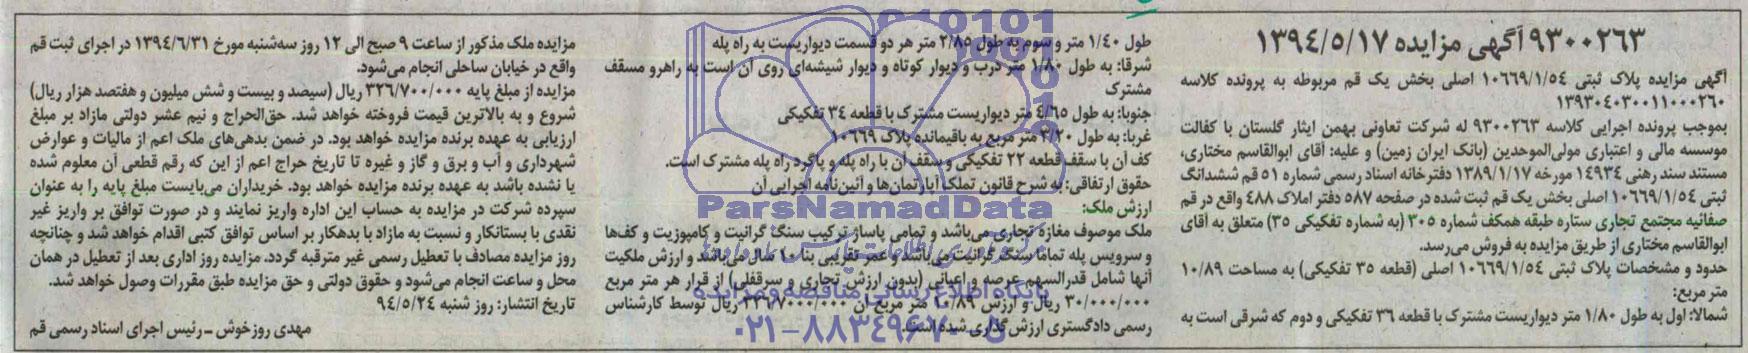 ۹۳۰۰۲۶۳ آگهی مزایده ۱۳۹۴/۵/۱۷
آگهی مزایده پلاک ثبتی ۱۰۶۶۹/۱/۵۴ اصلی بخش یک قم مربوطه به پرونده کلاسه
۱۳۹۳۰۴۰۳۰۰۱۱۰۰۰۲۶۰
بموجب پرونده اجرایی کلاسه ۹۳۰۰۲۶۳ له شرکت تعاونی بهمن ایثار گلستان با کفالت
موسسه مالی و اعتباری مولی‌الموحدین (بانک ایران زمین) و علیه: آقای ابوالقاسم مختاری،
مستند سند رهنی ۱۴۹۳۴ مورخه ۱۳۸۹/۱/۱۷ دفترخانه اسناد رسمی شماره ۵۱ قم ششدانگ
ثبتی ۱۰۶۶۹/۱/۵۴ اصلی بخش یک قم ثبت شده در صفحه ۵۸۷ دفتر املاک ۴۸۸ واقع در قم
صفائیه مجتمع تجاری ستاره طبقه همکف شماره ۳۰۵ (به شماره تفکیکی ۳۵) متعلق به آقای
ابوالقاسم مختاری از طریق مزایده به فروش می‌رسد.
حدود و مشخصات پلاک ثبتی ۱۰۶۶۹/۱/۵۴ اصلی (قطعه ۳۵ تفکیکی) به مساحت ۱۰/۸۹
متر مربع:
شمالا: اول به طول ۱/۸۰ متر دیواریست مشترک با قطعه ۳۶ تفکیکی و دوم که شرقی است به
طول ۱/۴۰ متر و سوم به طول ۲/۸۵ متر هر دو قسمت دیواریست به راه پله
شرقا: به طول ۱/۸۰ متر درب و دیوار کوتاه و دیوار شیشه‌ای روی آن است به راهرو مسقف
مشترک
جنوبا: به طول ۴/۶۵ متر دیواریست مشترک با قطعه ۳۴ تفکیکی
غربا: به طول ۳/۲۰ متر مربع به باقیمانده پلاک ۱۰۶۶۹
کف آن با سقف قطعه ۲۲ تفکیکی و سقف آن با راه پله و پاگرد راه پله مشترک است.
حقوق ارتفاقی: به شرح قانون تملک آپارتمان‌ها و آئین‌نامه اجرایی آن
ارزش ملک:
ملک موصوف مغازه تجاری می‌باشد و تمامی پاساژ ترکیب سنگ گرانیت و کامپوزیت و کف‌ها
و سرویس پله تماما سنگ گرانیت می‌باشد و عمر تقریبی بنا ۱۰ سال می‌باشد و ارزش ملکیت
آنها شامل قدرالسهم عرصه و اعیانی (بدون ارزش تجاری و سرقفلی) از قرار هر متر مربع
۳۰/۰۰۰/۰۰۰ ریال و ارزش ۱۰/۸۹ متر مربع آن ۳۲۶/۷۰۰/۰۰۰ ریال توسط کارشناس
رسمی دادگستری ارزش‌گذاری شده است.
مزایده ملک مذکور از ساعت ۹ صبح الی ۱۲ روز سه‌شنبه مورخ ۱۳۹۴/۶/۳۱ در اجرای ثبت قم
واقع در خیابان ساحلی انجام می‌شود.
مزایده از مبلغ پایه ۳۲۶/۷۰۰/۰۰۰ ریال (سیصد و بیست و شش میلیون و هفتصد هزار ریال)
شروع و به بالاترین قیمت فروخته خواهد شد. حق‌الحراج و نیم عشر دولتی مازاد بر مبلغ
ارزیابی به عهده برنده مزایده خواهد بود. در ضمن بدهی‌های ملک اعم از مالیات و عوارض
شهرداری و آب و برق و گاز و غیره تا تاریخ حراج اعم از این که رقم قطعی آن معلوم شده
یا نشده باشد به عهده برنده مزایده خواهد بود. خریداران می‌بایست مبلغ پایه را به عنوان
سپرده شرکت در مزایده به حساب این اداره واریز نمایند و در صورت توافق بر واریز غیر
نقدی با بستانکار و نسبت به مازاد با بدهکار بر اساس توافق کتبی اقدام خواهد شد و چنانچه
روز مزایده مصادف با تعطیل رسمی غیر مترقبه گردد. مزایده روز اداری بعد از تعطیل در همان
محل و ساعت انجام می‌شود و حقوق دولتی و حق مزایده طبق مقررات وصول خواهد شد.
تاریخ انتشار: روز شنبه ۹۴/۵/۲۴
مهدی روزخوش ـ رئیس اجرای اسناد رسمی قم
ParsNamadData
پایگاه اطلاع رسانی مناقصه و مزایده
۰۲۱-۸۸۳۴۹۶۷۰-۵